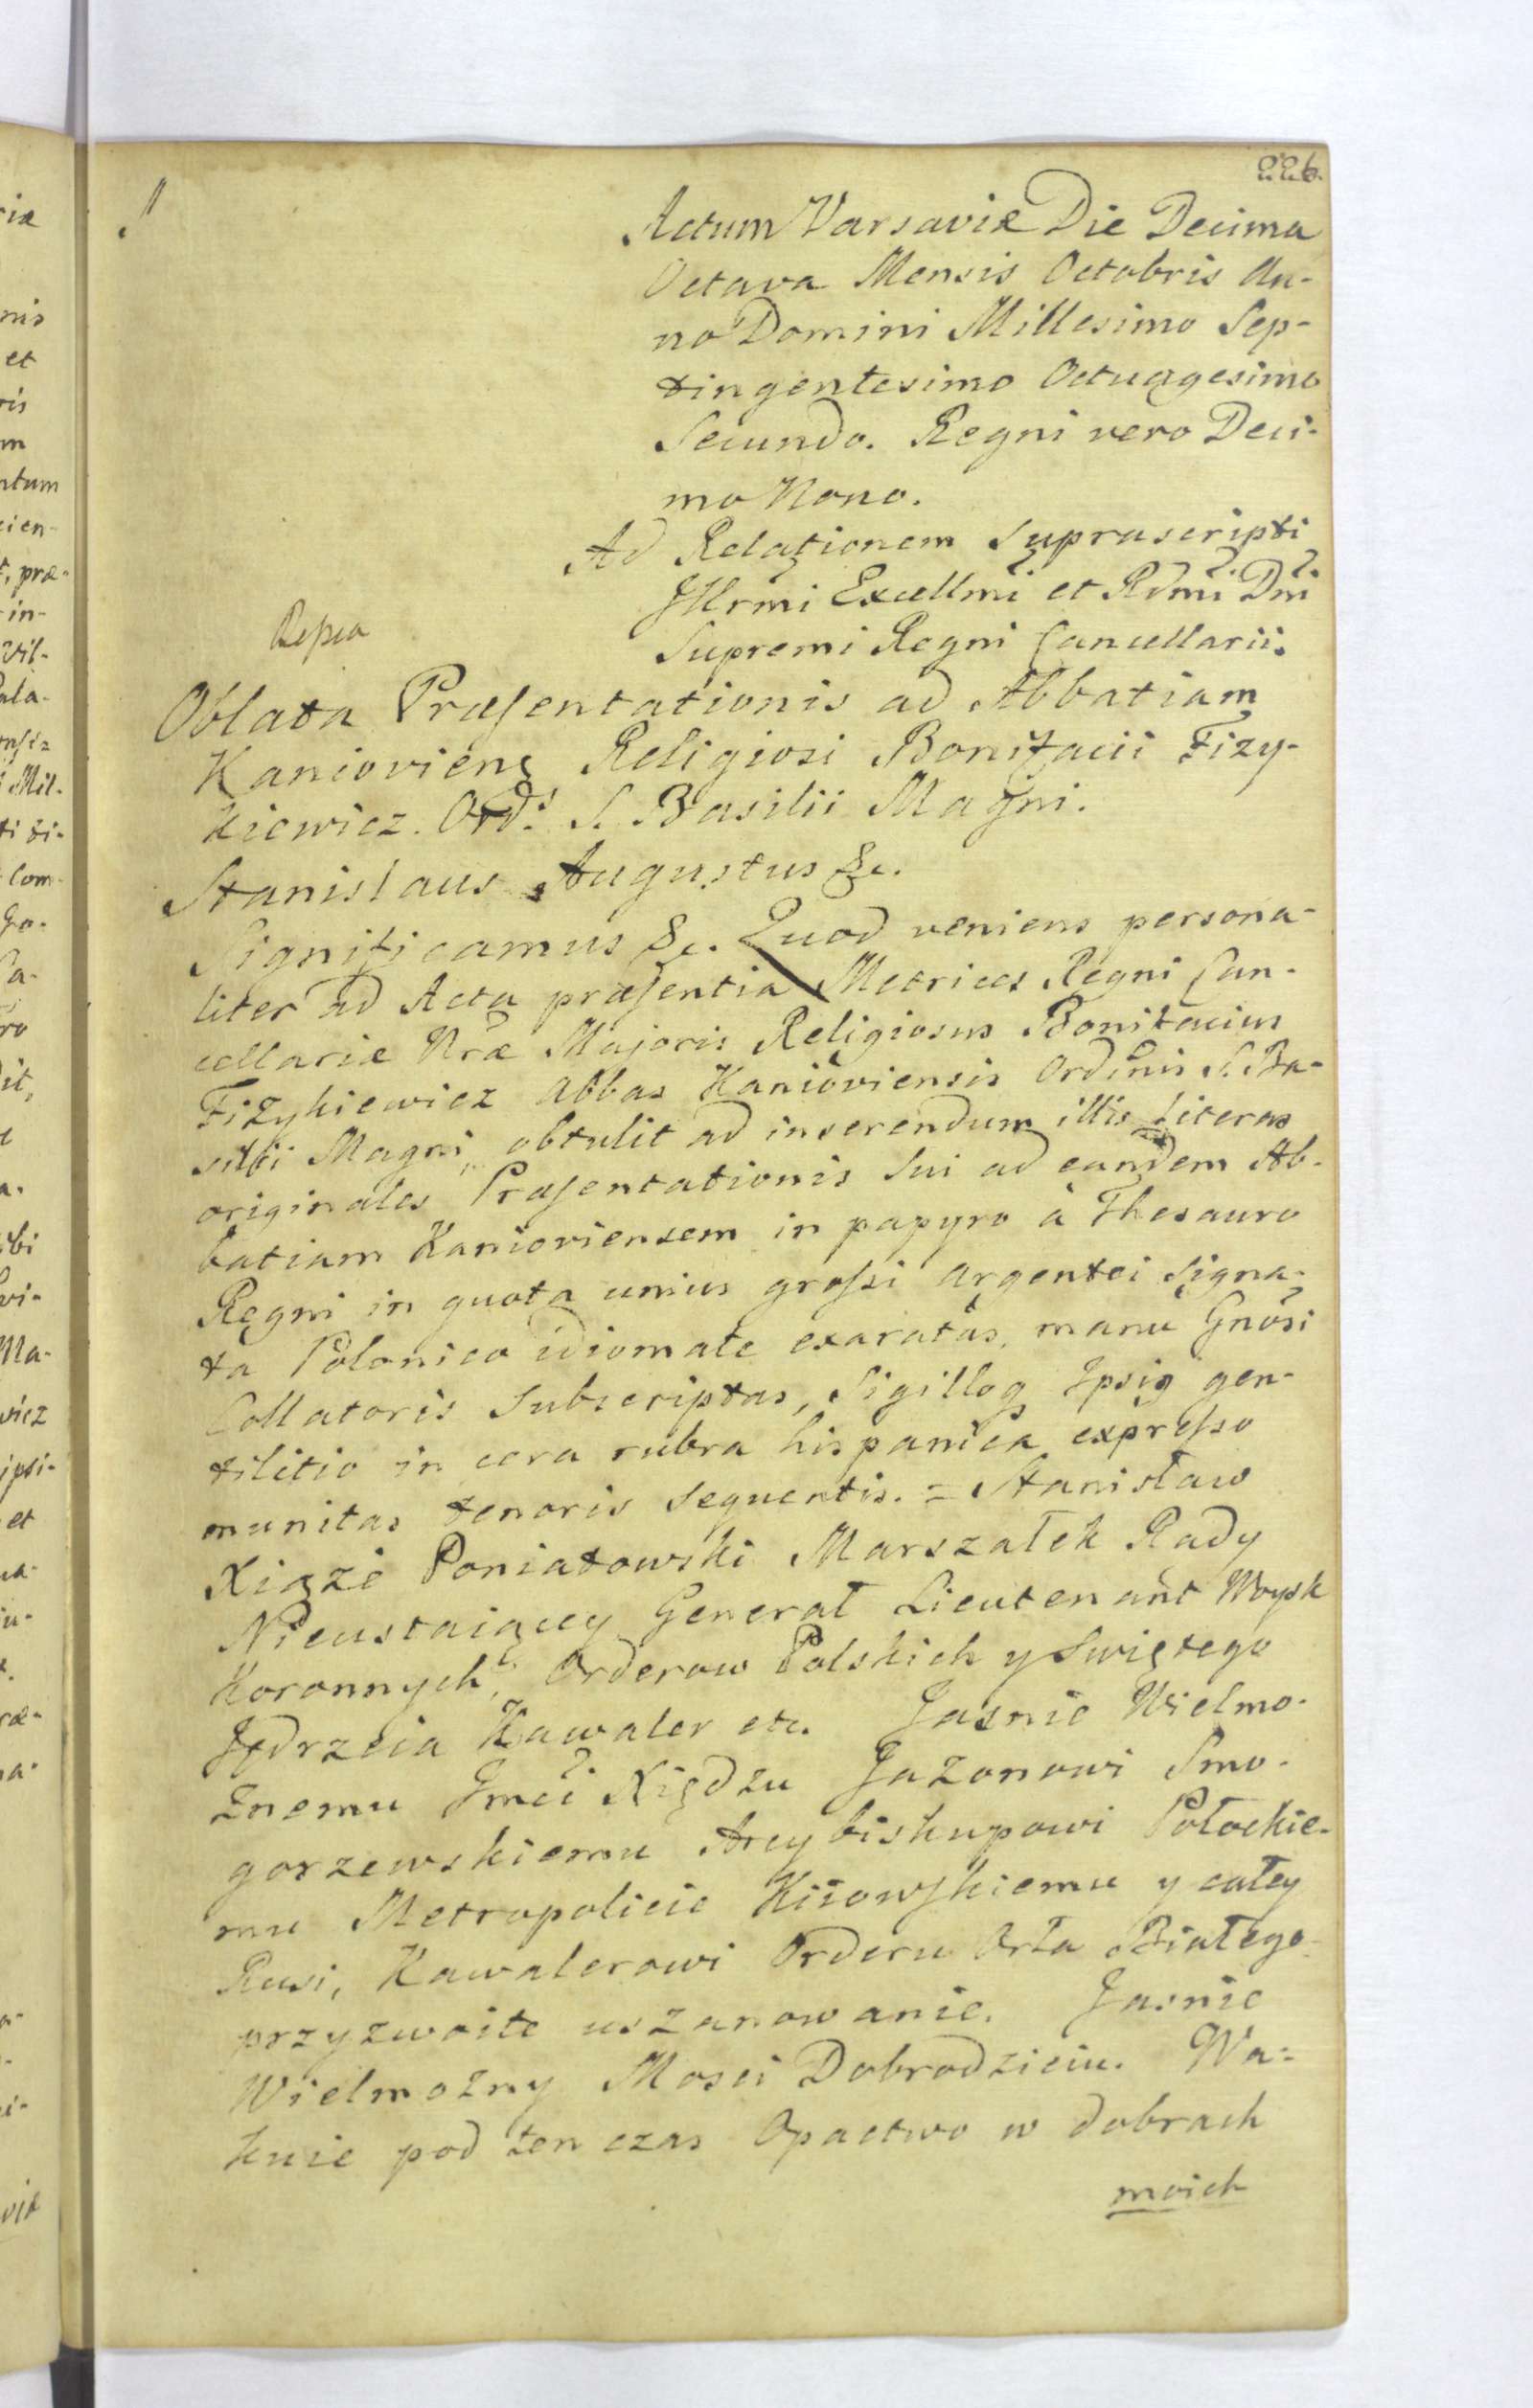 226.
Actum Varsaviæ Die Decima
Octava Mensis Octobris An-
no Domini Millesimo Sep-
tingentesimo Octuagesimo
Secundo. Regni vero Deci-
mo Nono.
Ad Relationem Suprascripti
Illrmi Excellmi et Rdmi Dni
Supremi Regni Cancellarii.
Oblata Præsentationis ad Abbatiam
Kaniovien͛ Religiosi Bonifacii Fizy-
kiewicz. Ord: S. Basilii Magni.
Stanislaus Augustus &c.
Significamus &c. Quod veniens persona-
liter ad Acta præsentia Metrices Regni Can-
cellariæ Nræ Majoris Religiosus Bonifacius
Fizykiewicz Abbas Kanioviensis Ordinis S. Ba-
silii Magni, obtulit ad inserendum illis Literas
originales Præsentationis Sui ad eandem Ab-
batiam Kanioviensem in papyro à Thesauro
Regni in quota unius grossi argentei Signa-
ta Polonico idiomate exaratas, manu Gnosi
Collatoris Subscriptas, Sigilloq Ipsiq gen-
tilitio in cera rubra hispanica expresso
munitas tenoris sequentis. = Stanisław
Xiąże Poniatowski Marszałek Rady
Nieustaiącey Generał Lieutenant Woysk
Koronnych, Orderow Polskich y Swiętego
Jędrzeia Kawaler etc. Jasnie Wielmo-
żnemu Jmci Xiędzu Jazonowi Smo-
gorzewskiemu Arcybiskupowi Połockie-
mu Metropolicie Kiiowskiemu y całey
Rusi, Kawalerowi Orderu Orła Białego
przyzwoite uszanowanie. Jasnie
Wielmożny Mosci Dobrodzieiu. Wa-
kuie pod ten czas Opactwo w dobrach
moich